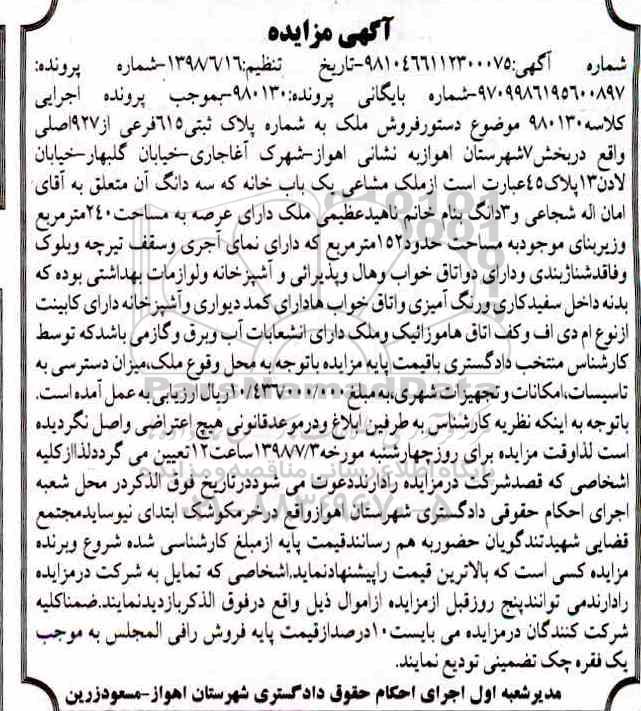 آگهی مزایده
شماره آگهی:۹۸۱۰۴۶۶۱۱۲۳۰۰۰۷۵-تاریخ تنظیم:۱۳۹۸/۶/۱۶-شماره پرونده:
۹۷۰۹۹۸۶۱۹۵۶۰۰۸۹۷-شماره بایگانی پرونده:۹۸۰۱۳۰-بموجب پرونده اجرایی
کلاسه۹۸۰۱۳۰ موضوع دستورفروش ملک به شماره پلاک ثبتی۶۱۵فرعی از۹۲۷اصلی
واقع دربخش۷شهرستان اهوازبه نشانی اهواز-شهرک آغاجاری-خیابان گلبهار-خیابان
لادن۱۳پلاک۴۵عبارت است ازملک مشاعی یک باب خانه که سه دانگ آن متعلق به آقای
امان اله شجاعی و۳دانگ بنام خانم ناهیدعظیمی ملک دارای عرصه به مساحت۲۴۰مترمربع
وزیربنای موجودبه مساحت حدود۱۵۲مترمربع که دارای نمای آجری وسقف تیرچه وبلوک
وفاقدشناژبندی ودارای دواتاق خواب وهال وپذیرائی و آشپزخانه ولوازمات بهداشتی بوده که
بدنه داخل سفیدکاری ورنگ آمیزی واتاق خواب هادارای کمد دیواری وآشپزخانه دارای کابینت
ازنوع ام دی اف وکف اتاق هاموزائیک وملک دارای انشعابات آب وبرق وگازمی باشدکه توسط
کارشناس منتخب دادگستری باقیمت پایه مزایده باتوجه به محل وقوع ملک،میزان دسترسی به
تاسیسات،امکانات وتجهیزات شهری،به مبلغ۱۰/۴۳۷/۰۰۰/۰۰۰ریال ارزیابی به عمل آمده است.
باتوجه به اینکه نظریه کارشناس به طرفین ابلاغ ودرموعدقانونی هیچ اعتراضی واصل نگردیده
است لذاوقت مزایده برای روزچهارشنبه مورخه۱۳۹۸/۷/۳ساعت۱۲تعیین می گرددلذاازکلیه
اشخاصی که قصدشرکت درمزایده رادارنددعوت می شوددرتاریخ فوق الذکردر محل شعبه
اجرای احکام حقوقی دادگستری شهرستان اهوازواقع درخرمکوشک ابتدای نیوسایدمجتمع
قضایی شهیدتندگویان حضوربه هم رسانندقیمت پایه ازمبلغ کارشناسی شده شروع وبرنده
مزایده کسی است که بالاترین قیمت راپیشنهادنماید.اشخاصی که تمایل به شرکت درمزایده
رادارندمی توانندپنج روزقبل ازمزایده ازاموال ذیل واقع درفوق الذکربازدیدنمایند.ضمناکلیه
شرکت کنندگان درمزایده می بایست۱۰درصدازقیمت پایه فروش رافی المجلس به موجب
یک فقره چک تضمینی تودیع نمایند.
مدیرشعبه اول اجرای احکام حقوق دادگستری شهرستان اهواز-مسعودزرین